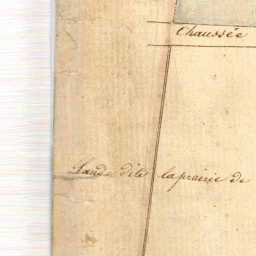 Chaussée
Lande dite la prairie de